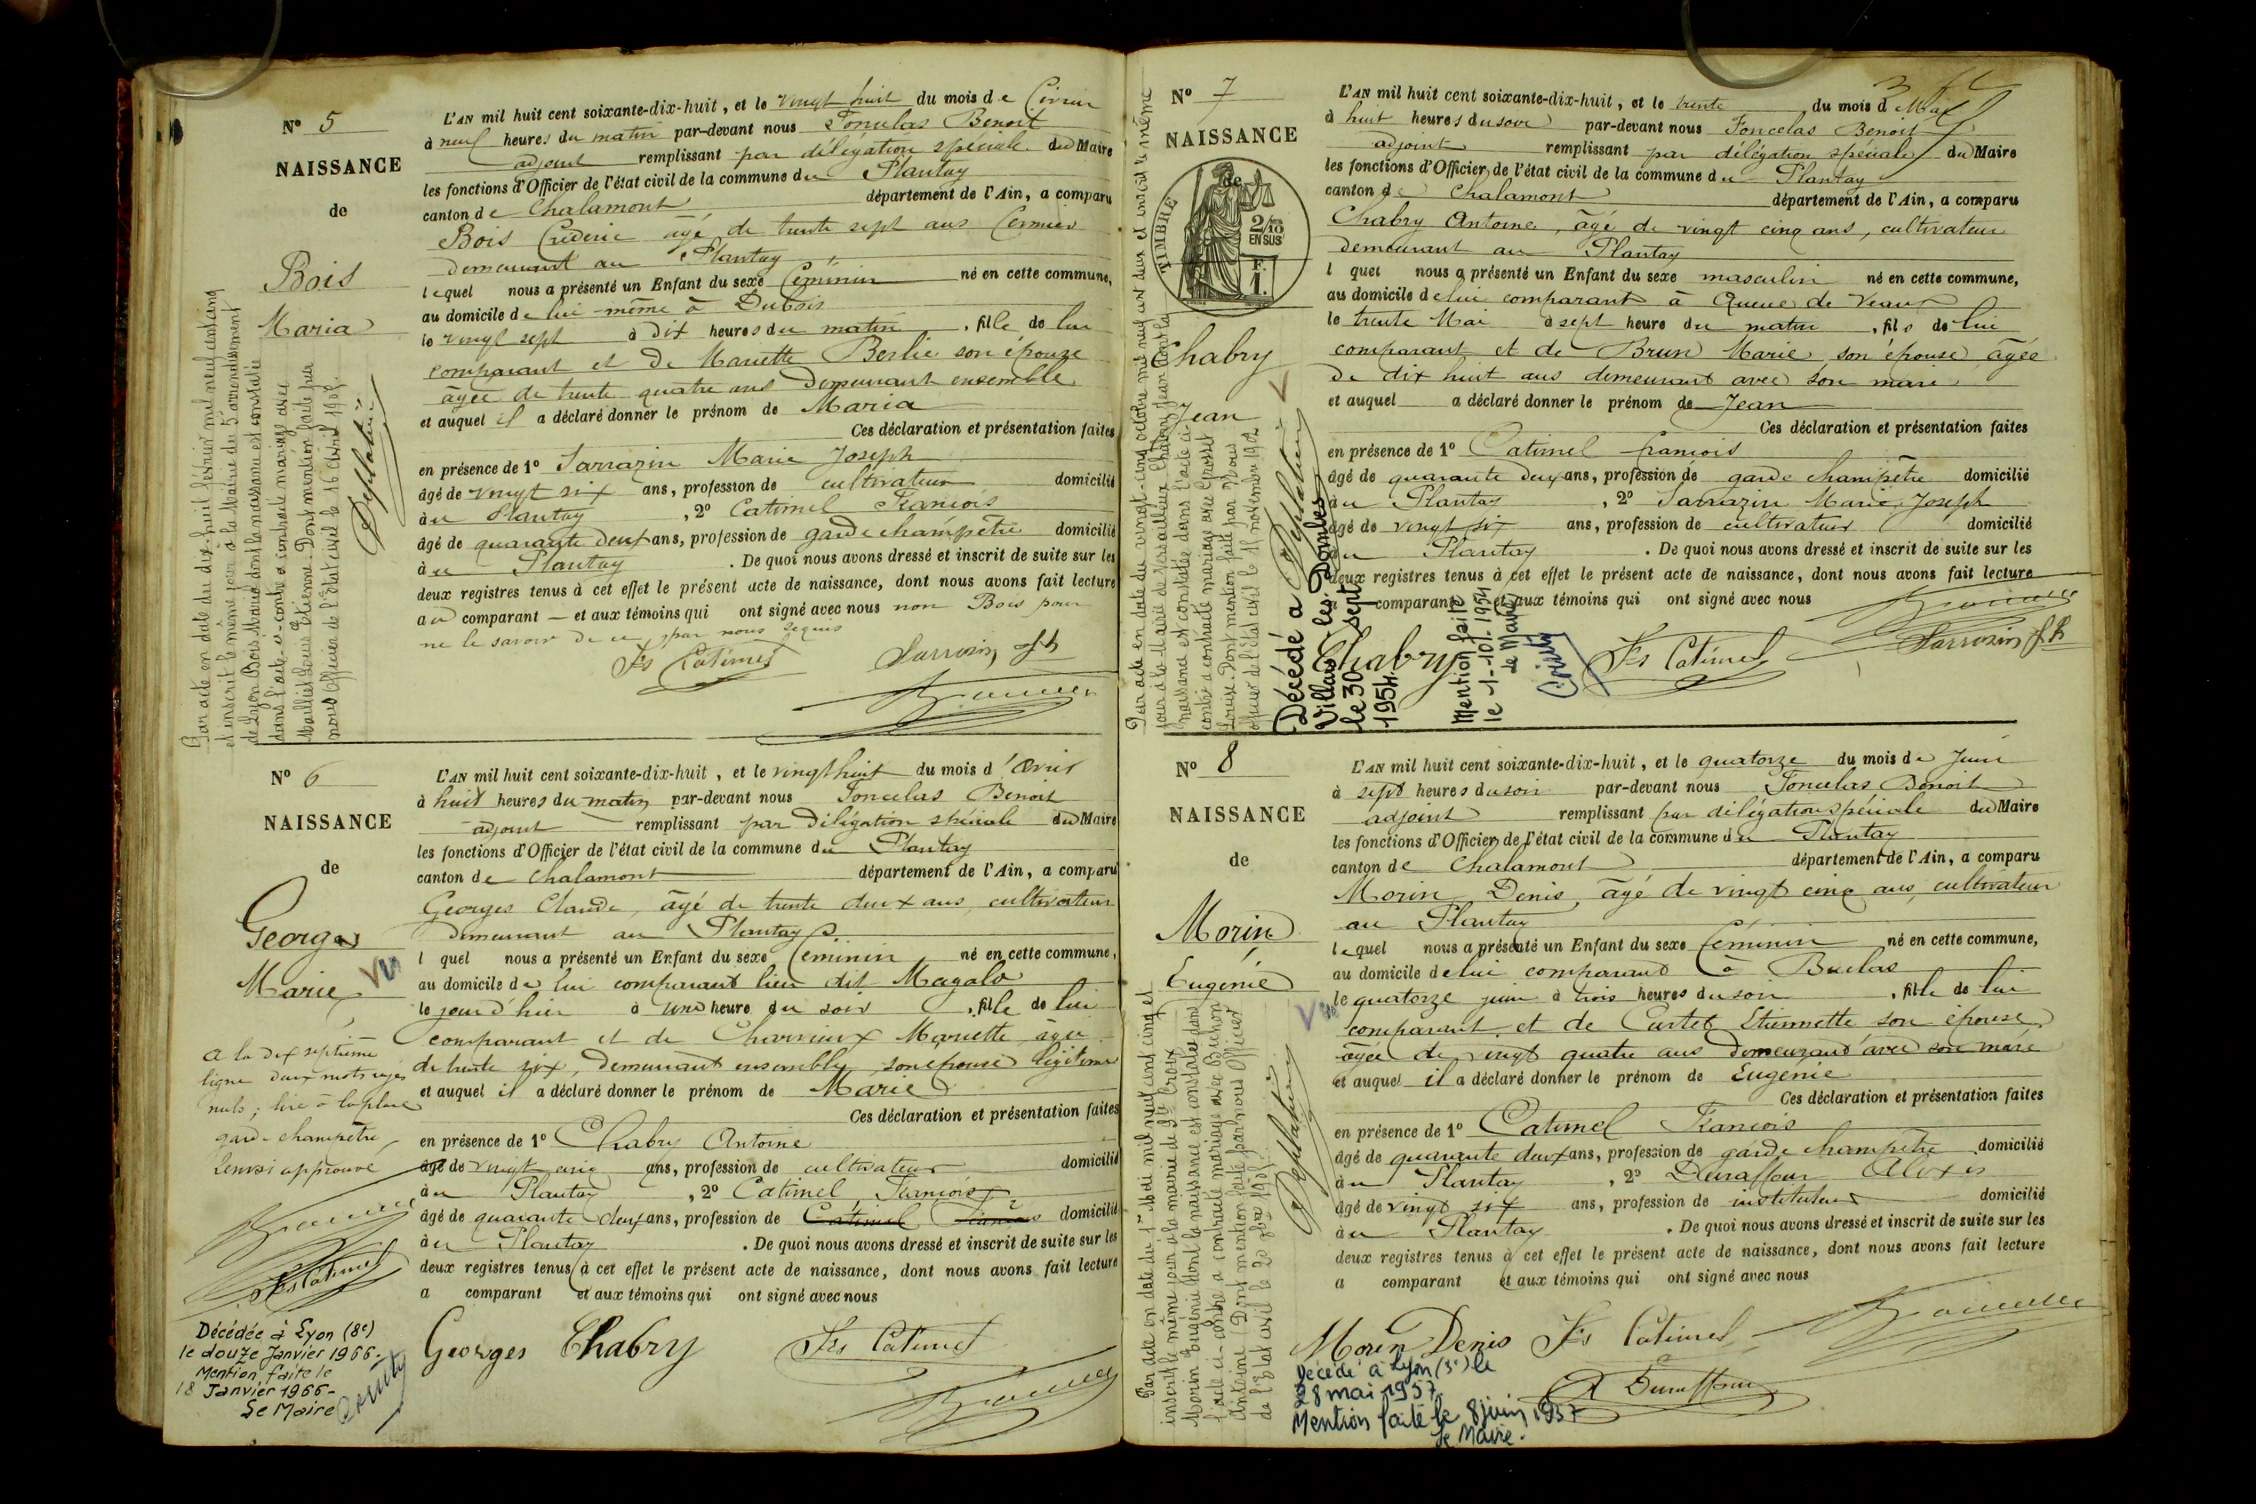 Nº 5
NAISSANCE
de
Bois
Maria
L'AN mil huit cent soixante-dix-huit, et le vingt huit du mois de
à neuf heures du matin par-devant nous Foncelas Benoit
adjoint remplissant par délégation spéciale du Maire
les fonctions d'Officier de l'état civil de la commune du Plantay
canton de Chalamont département de l'Ain, a comparu
Bois âgé de trente sept ans fermier
demeurant au Plantay
lequel nous a présenté un Enfant du sexe féminin né en cette commune,
au domicile de lui-même à Dubois
le vingt sept à dix heures du matin, fille de lui
comparant et de Mariette Berlie son épouse
âgée de trente quatre ans demeurant ensemble
et auquel il a déclaré donner le prénom de Maria
Ces déclaration et présentation faites
en présence de 1º Sarrazin Marie Joseph
âgé de vingt six ans, profession de cultivateur domicilié
au Plantay, 2º Catimel François
âgé de quarante deux ans, profession de garde champêtre domicilié
au Plantay. De quoi nous avons dressé et inscrit de suite sur les
deux registres tenus à cet effet le présent acte de naissance, dont nous avons fait lecture
au comparant — et aux témoins qui ont signé avec nous non Bois pour
ne le savoir de ce par nous requis
Fs Catimel Sarrozin jh
Par acte en date du dix-huit février mil neuf cent cinq
et inscrit le même jour à la Mairie du 5e arrondissement
de Lyon Bois Maria dont la naissance est constatée
dans l'acte ci-contre a contracté mariage avec
Louis Etienne. Dont mention faite par
nous Officier de l'Etat civil le 16 avril 1905.
Nº 6
NAISSANCE
de
Georges
Marie
Vu
L'AN mil huit cent soixante-dix-huit, et le vingt huit du mois d'avril
à huit heures du matin par-devant nous Foncelas Benoit
adjoint remplissant par délégation spéciale du Maire
les fonctions d'Officier de l'état civil de la commune du Plantay
canton de Chalamont département de l'Ain, a comparu
Georges Claude, âgé de trente deux ans cultivateur
demeurant au Plantay
lquel nous a présenté un Enfant du sexe féminin né en cette commune,
au domicile de lui comparant lieu dit Magalo
le jour d'hier à une heure du soir, fille de lui
comparant et de Charvieux Mariette âgée
de trente six, demeurant ensemble, son épouse légitime
et auquel il a déclaré donner le prénom de Marie
Ces déclaration et présentation faites
en présence de 1º Chabry Antoine
âgé de vingt cinq ans, profession de cultivateur domicilié
au Plantay, 2º Catimel François
âgé de quarante deux ans, profession de Catimel François domicilié
au Plantay. De quoi nous avons dressé et inscrit de suite sur les
deux registres tenus à cet effet le présent acte de naissance, dont nous avons fait lecture
a comparant et aux témoins qui ont signé avec nous
Georges Chabry Frs Catimel
a la dix septième
ligne deux mots rayés
nuls; lire à la place
garde champêtre
renvoi approuvé
Fs Catimel
Décédée à Lyon (8e)
le douze Janvier 1966.
Mention faite le
18 Janvier 1966-
Le Maire
Nº 7
NAISSANCE
de
TIMBRE
2/10
EN SUS
F.
1.
Chabry
Jean
L'AN mil huit cent soixante-dix-huit, et le trente du mois d Mai
à huit heures du soir par-devant nous Foncelas Benoit
adjoint remplissant par délégation spéciale du Maire
les fonctions d'Officier de l'état civil de la commune du Plantay
canton de Chalamont département de l'Ain, a comparu
Chabry Antoine, âgé de vingt cinq ans, cultivateur
demeurant au Plantay
lquel nous a présenté un Enfant du sexe masculin né en cette commune,
au domicile de lui comparant à Queue de Veaux
le trente Mai à sept heure du matin, fils de lui
comparant et de Brun Marie son épouse âgée
de dix huit ans demeurant avec son mari
et auquel a déclaré donner le prénom de Jean
Ces déclaration et présentation faites
en présence de 1º Catimel françois
âgé de quarante deux ans, profession de garde champêtre domicilié
au Plantay, 2º Sarrazin Marie Joseph
âgé de vingt six ans, profession de cultivateur domicilié
au Plantay. De quoi nous avons dressé et inscrit de suite sur les
deux registres tenus à cet effet le présent acte de naissance, dont nous avons fait lecture
comparant et aux témoins qui ont signé avec nous
Chabry Frs Catimel Sarrozin jh
Par acte en date du vingt-cinq octobre mil neuf cent deux et inscrit le même
jour à la Mairie de Versailleux Chabry Jean dont la
naissance est constatée dans l'acte ci-
contre a contracté mariage avec Grosset
Louise. Dont mention faite par Nous
officier de l'Etat civil le 11 novembre 1902
Décédé à
Villars les Dombes
le 30 sept
1954.
Mention faite
le 1-10-1954
Le Maire
Nº 8
NAISSANCE
de
Morin
Eugénie
Vu
L'AN mil huit cent soixante-dix-huit, et le quatorze du mois de Juin
à sept heures du soir par-devant nous Foncelas Benoit
adjoint remplissant par délégation spéciale du Maire
les fonctions d'Officier de l'état civil de la commune du Plantay
canton de Chalamont département de l'Ain, a comparu
Morin Denis, âgé de vingt cinq ans, cultivateur
au Plantay
lequel nous a présenté un Enfant du sexe féminin né en cette commune,
au domicile de lui comparant à Buclas
le quatorze juin à trois heures du soir, fille de lui
comparant et de Curtet Etiennette son épouse
âgée de vingt quatre ans demeurant avec son mari
et auquel il a déclaré donner le prénom de Eugénie
Ces déclaration et présentation faites
en présence de 1º Catimel François
âgé de quarante deux ans, profession de garde champêtre domicilié
au Plantay, 2º Duraffour Alexis
âgé de vingt six ans, profession de instituteur domicilié
au Plantay. De quoi nous avons dressé et inscrit de suite sur les
deux registres tenus à cet effet le présent acte de naissance, dont nous avons fait lecture
a comparant et aux témoins qui ont signé avec nous
Morin Denis Frs Catimel
A Duraffour
Par acte en date du 1er Mai mil neuf cent cinq et
inscrit le même jour à la mairie de Ste Croix
Morin Eugénie dont la naissance est constatée dans
l'acte ci-contre a contracté mariage avec Buchon
Antoine. Dont mention faite par nous Officier
de l'Etat civil le 20 1905.
Décédé à Lyon (3e) le
28 mai 1957
Mention faite le 8 juin 1957
Le Maire.